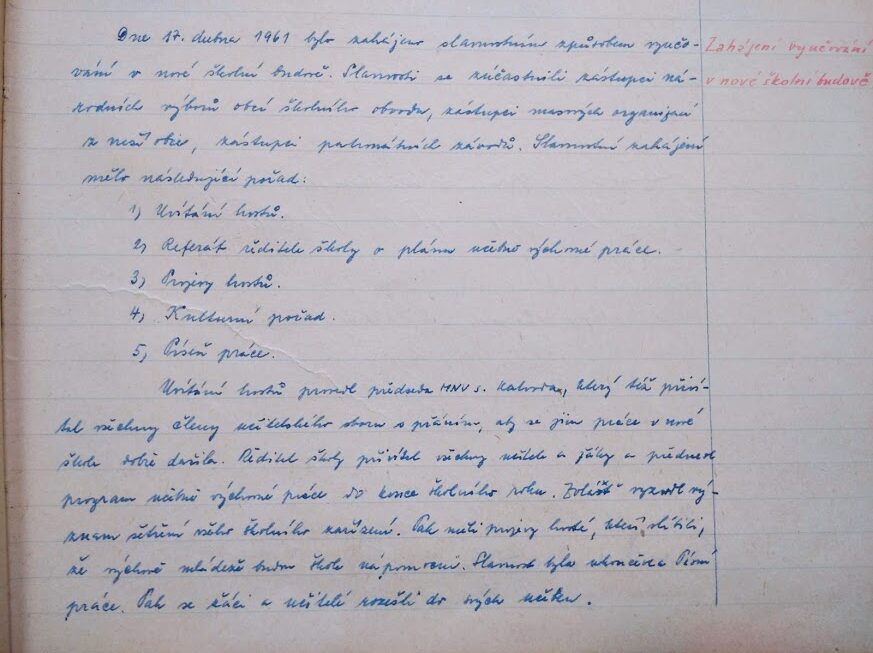 Dne 17. dubna 1961 bylo zahájeno slavnostním způsobem vyučo-
Zahájení vyučování
vání v nové školní budově. Slavnosti se zúčastnili zástupci ná-
v nové školní budově
rodních výborů obcí školního obvodu, zástupci masových organizací
z naší obce, zástupci patronátních závodů. Slavnostní zahájení
mělo následující pořad:
1) Uvítání hostů.
2) Referát ředitele školy o plánu učebně výchovné práce.
3) Projevy hostů.
4) Kulturní pořad.
5) Píseň práce.
Uvítání hostů provedl předseda MNV s. který též přiví-
tal všechny členy učitelského sboru s přáním, aby se jim práce v nové
škole dobře dařila. Ředitel školy přivítal všechny učitele a žáky a přednesl
program učebně výchovné práce do konce školního roku. Zvlášť vyzvedl vý-
znam šetření všeho školního zařízení. Pak měli projevy hosté, kteří slíbili,
že výchově mládeže budou škole nápomocni. Slavnost byla ukončena Písní
práce. Pak se žáci a učitelé rozešli do svých učeben.